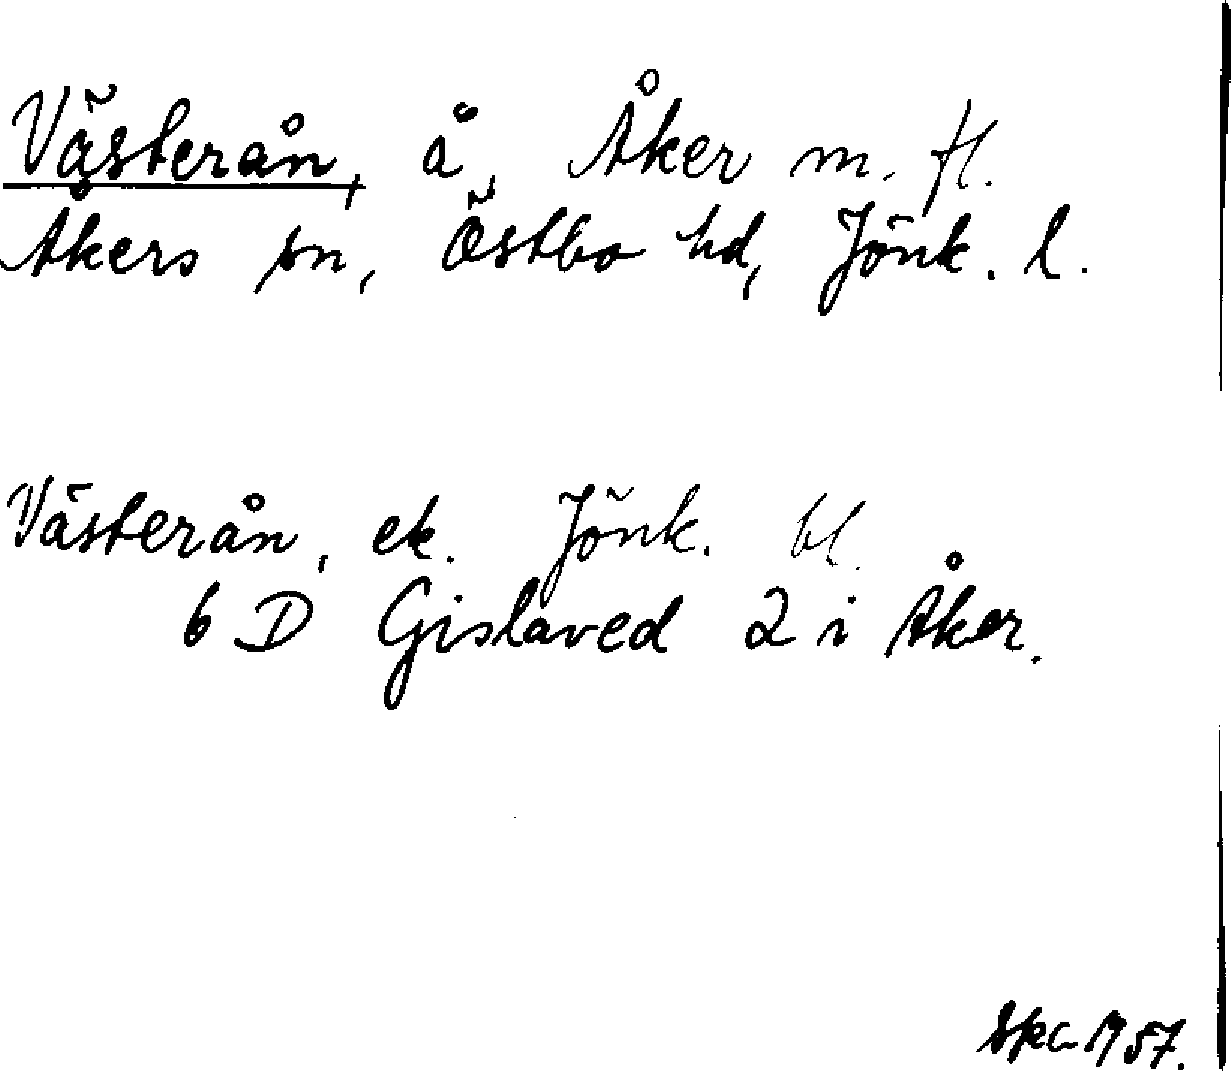 Västerån, å, Åker m. fl.
Åkers sn, Östbo hd, Jönk. l.
Västerån, ek. Jönk. bl.
6 D Gislaved 2 i Åker.
1957.